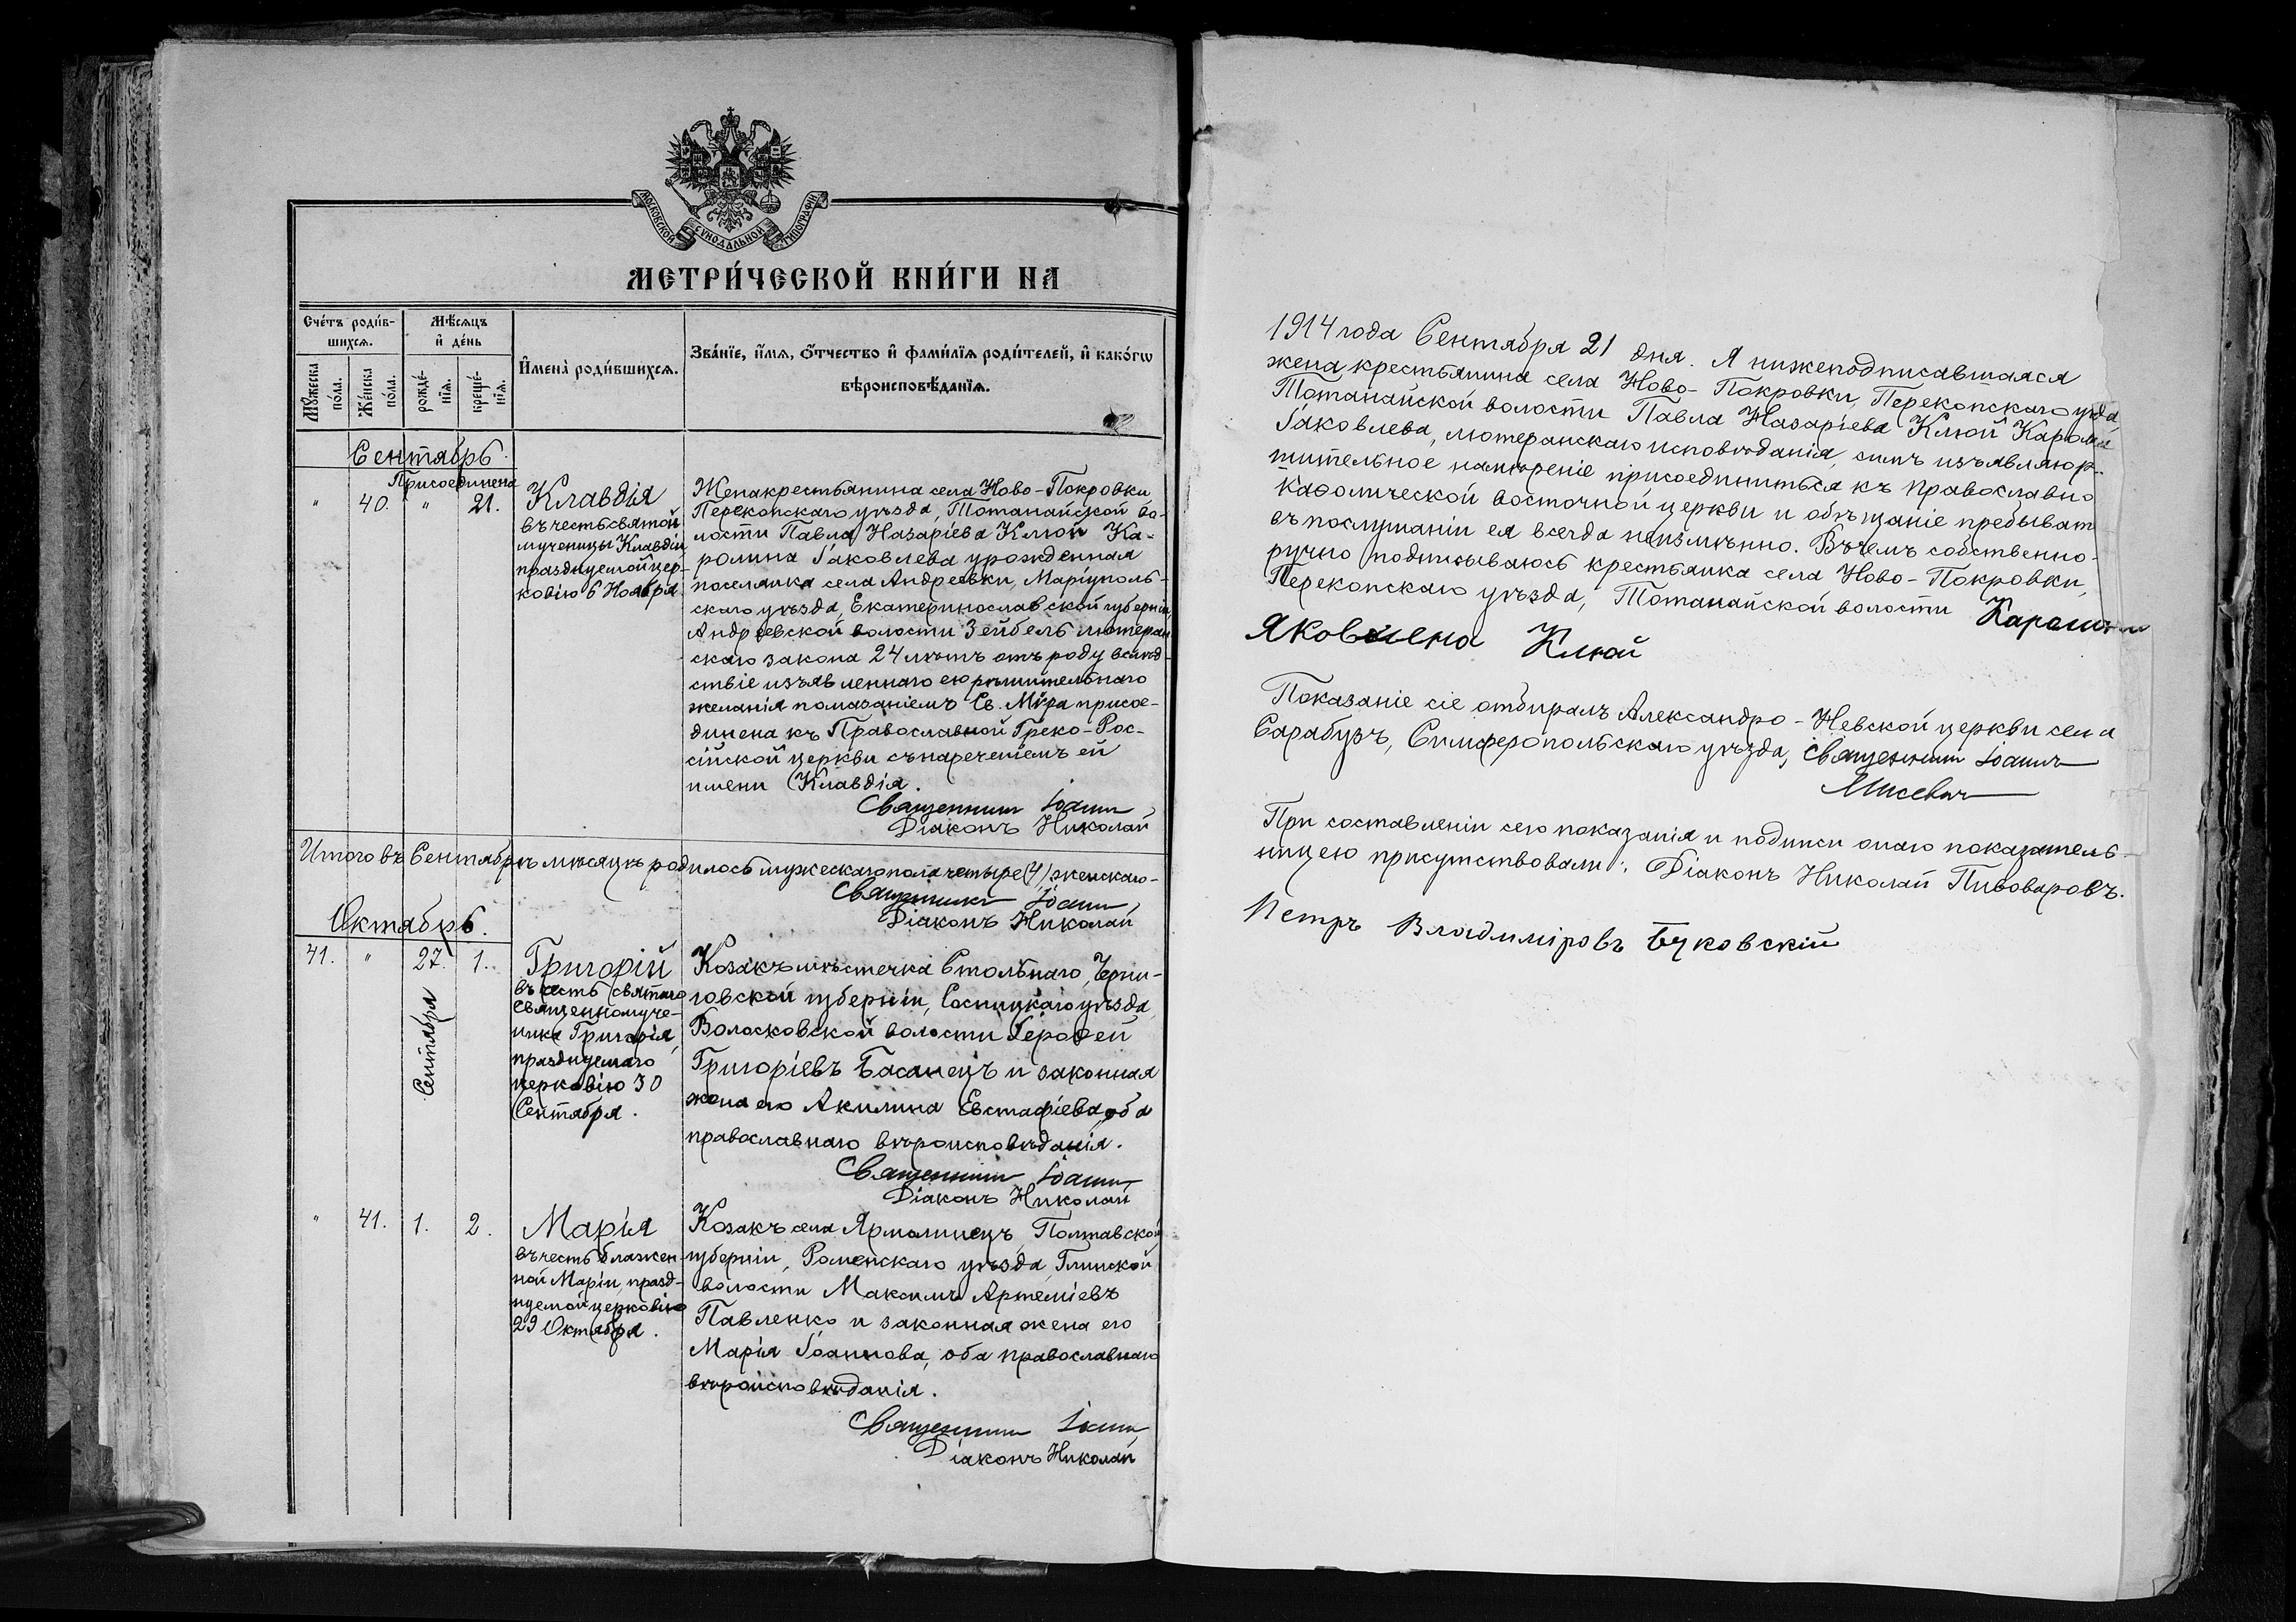 МОСКОВСКОЙ СУНОДАЛЬНОЙ ТИПОГРАФІИ
МЕТРИ́ЧЕСКОЙ КНИ́ГИ НА
Сче́тъ роди́в-
шихсѧ.
Мѣ́сѧцъ
и҆ де́нь
И҆мена̀ роди́вшихсѧ.
Зва́нїе, и҆́мѧ, ѻ҆́тчество и҆ фами́лїѧ роди́телей, и҆ како́гѡ
вѣроисповѣ́данїѧ.
Мꙋ́жеска
по́ла.
Же́нска
по́ла.
рожде́-
нїѧ.
креще́-
нїѧ.
Сентябрь.
Присоединена
" 40. " 21.
Клавдія
въ честь святой
мученицы Клавдіи
празднуемой цер-
ковію 6 Ноября
Жена крестьянина села Ново-Покровки
Перекопскаго уѣзда, Тотанайской во-
лости Павла Назаріева Клюй Ка-
ролина Іаковлева урожденная
поселянка села Андреевки, Маріуполь-
скаго уѣзда, Екатеринославской губерніи
Андреевской волости Зейбель лютеран
скаго закона 24 лѣтъ отъ роду вслѣд-
ствіе изъявленнаго ею рѣшительнаго
желанія помазаніемъ Св. Мѵра присое-
динена къ Православной Греко-Рос-
сійской церкви съ нареченіемъ ей
имени Клавдія.
Священникъ Іоаннъ
Діаконъ Николай
Итого въ Сентябрѣ мѣсяцѣ родилось мужескаго пола четыре (4) женскаго-
Священникъ Іоаннъ
Діаконъ Николай
Октябрь.
41. " 27. 1.
Сентября
Григорій
въ честь святаго
Священномуче-
ника Григорія,
празднуемаго
церковію 30
Сентября.
Козакъ мѣстечка Стольнаго, Черни-
говской губерніи, Сосницкаго уѣзда,
Волосковской волости Іероѳей
Григоріевъ Басанецъ и законная
жена его Акилина Евстафіева, оба
православнаго вѣроисповѣданія.
Священникъ Іоаннъ
Діаконъ Николай
" 41. 1. 2.
Марія
въ честь блажен-
ной Маріи, празд-
нуемой церковію
29 Октября.
Козакъ села Ярмалинецъ, Полтавской
губерніи, Роменскаго уѣзда, Глинской
волости Максимъ Артеміевъ
Павленко и законная жена его
Марія Іоаннова, оба православнаго
вѣроисповѣданія.
Священникъ Іоаннъ
Діаконъ Николай
1914 года Сентября 21 дня. Я нижеподписавшаяся
жена крестьянина села Ново-Покровки, Перекопскаго уѣзда,
Тотанайской волости Павла Назаріева Клюй Каролина
Іаковлева, лютеранскаго исповѣданія, симъ изъявляю р-
шительное намѣреніе присоединиться къ православно
каѳолической восточной церкви и обѣщаніе пребыват
въ послушаніи ея всегда неизмѣнно. Въ чемъ собственно-
ручно подписываюсь крестьянка села Ново-Покровки,
Перекопскаго уѣзда, Тотанайской волости Каролина
Яковлена Клюй
Показаніе сіе отбиралъ Александро-Невской церкви села
Сарабузъ, Симферопольскаго уѣзда, Священникъ Іоаннъ
Мисевич
При составленіи сего показанія и подписи онаго показатель-
ницею присутствовали: Діаконъ Николай Пивоваровъ.
Петръ Владиміровъ Буковскій